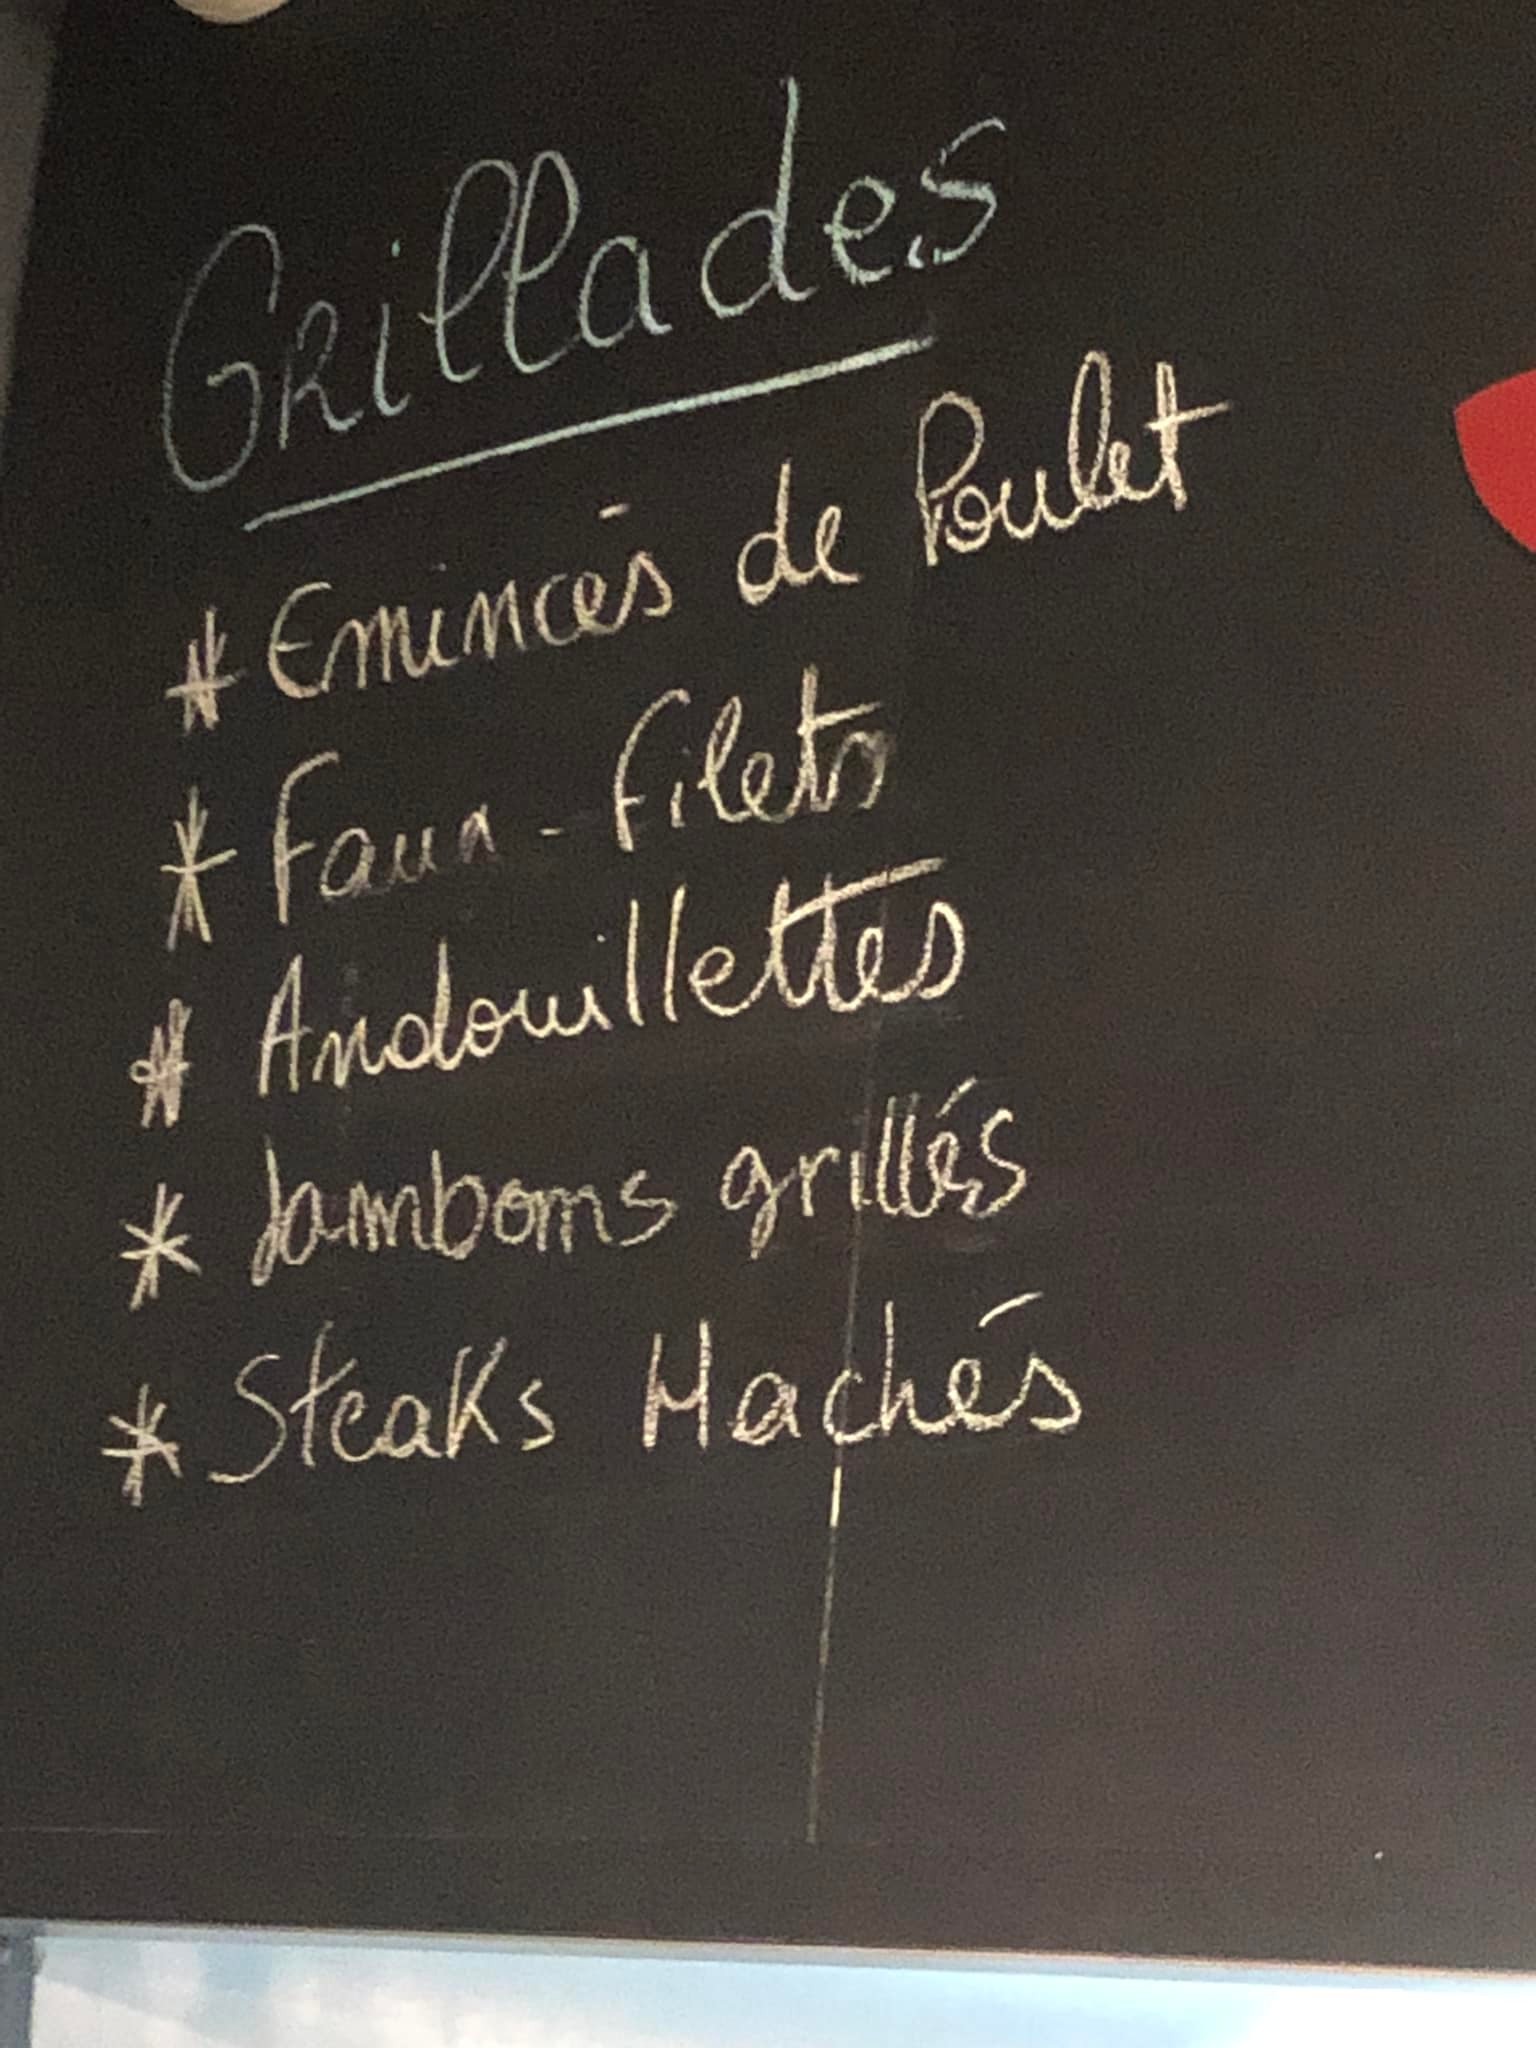 Grillades
* Emincés de Poulet
* Faux-Filets
* Andouillettes
* Jambons grillés
* Steaks Hachés